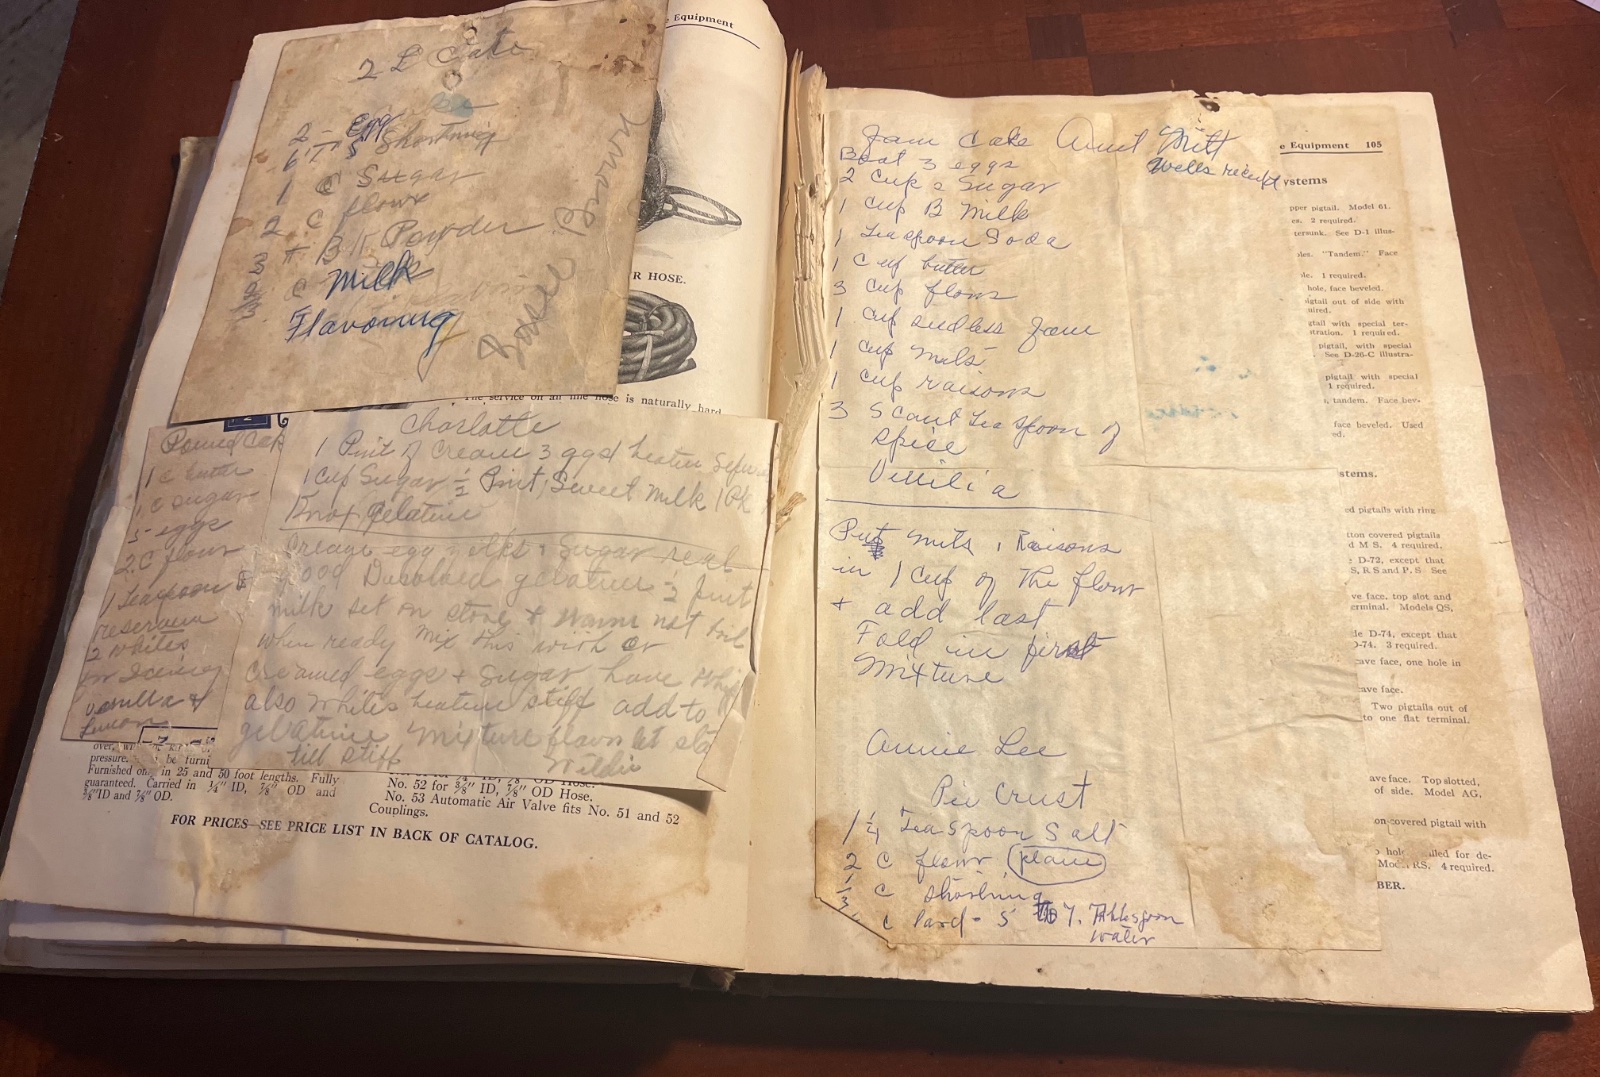 e Equipment
2 L Cake
2 - Egg
6 T S Shortning
1 C Sugar
2 C flour
3 t B Powder
C Milk
Flavoring
Brown
R HOSE.
The service on air line hose is naturally hard
Pound Cake
1 C butter
C sugar
5 eggs
2 C flour
1 Teaspoon
reserve
2 whites
for Iceing
vanilla &
Lemon
Charlotte
1 Pint of Cream 3 eggs beaten
1 Cup Sugar ½ Pint Sweet Milk 1 Pk
Knox Gelatine
Creage egg yolks & Sugar real
good Disolved gelatine
milk set on stove & warm not boil
when ready mix this with or
creamed eggs & Sugar have whip
also Whites beaten stiff add to
gelatine mixture flavor let sta
till stiff
Wildie
over, wi
pressure. be furni
Furnished only in 25 and 50 foot lengths. Fully
guaranteed. Carried in ¼" ID, ⅞" OD and
⅜" ID and ⅞" OD.
No. 52 for ⅜" ID, ⅞" OD Hose.
No. 53 Automatic Air Valve fits No. 51 and 52
Couplings.
FOR PRICES—SEE PRICE LIST IN BACK OF CATALOG.
Jam Cake Aunt Mitt
Wells receipt
Beat 3 eggs
2 Cups Sugar
1 Cup B Milk
1 Teaspoon Soda
1 Cup butter
3 Cup flour
1 Cup seedless Jam
1 Cup nuts
1 Cup raisons
3 Scant Teaspoon of
Spice
Vinilia
Put nuts, Raisons
in 1 Cup of the flour
+ add last
Fold in first
Mixture
Annie Lee
Pie Crust
1 ¼ Teaspoon Salt
2 C flour plain
⅓ C shortning
C lard - 5 to 7. Tablespoon
water
e Equipment 105
ystems
pper pigtail. Model 61.
es. 2 required.
termink. See D-1 illus-
les. "Tandem." Face
le. 1 required.
hole, face beveled.
igtail out of side with
uired.
gtail with special ter-
stration. 1 required.
pigtail, with special
See D-26-C illustra-
pigtail with special
1 required.
tandem. Face bev-
face beveled. Used
ed.
stems.
ed pigtails with ring
tton covered pigtails
d M S. 4 required.
D-72, except that
S, R S and P. S See
ve face, top slot and
erminal. Models QS,
de D-74, except that
D-74. 3 required.
cave face, one hole in
ave face.
Two pigtails out of
to one flat terminal.
ave face. Top slotted,
of side. Model AG,
on-covered pigtail with
hole drilled for de-
Model RS. 4 required.
BER.